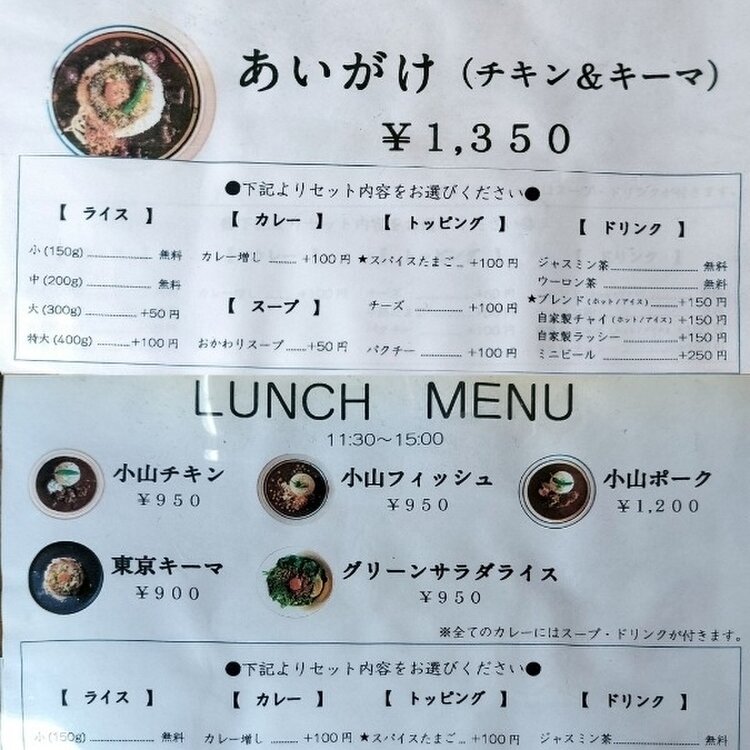 あいがけ（チキン＆キーマ）
￥1,350
●下記よりセット内容をお選びください●
【 ライス 】 【 カレー 】 【 トッピング 】 【 ドリンク 】
小(150g) 無料
中(200g) 無料
大(300g) +50円
特大(400g) +100円
カレー増し +100円
【 スープ 】
おかわりスープ +50円
★スパイスたまご +100円
チーズ +100円
パクチー +100円
ジャスミン茶 無料
ウーロン茶 無料
★ブレンド(ホット/アイス) +150円
自家製チャイ(ホット/アイス) +150円
自家製ラッシー +150円
ミニビール +250円
LUNCH MENU
11:30～15:00
小山チキン
￥950
小山フィッシュ
￥950
小山ポーク
￥1,200
東京キーマ
￥900
グリーンサラダライス
￥950
※全てのカレーにはスープ・ドリンクが付きます。
●下記よりセット内容をお選びください●
【 ライス 】 【 カレー 】 【 トッピング 】 【 ドリンク 】
小(150g) 無料 カレー増し +100円 ★スパイスたまご +100円 ジャスミン茶 無料